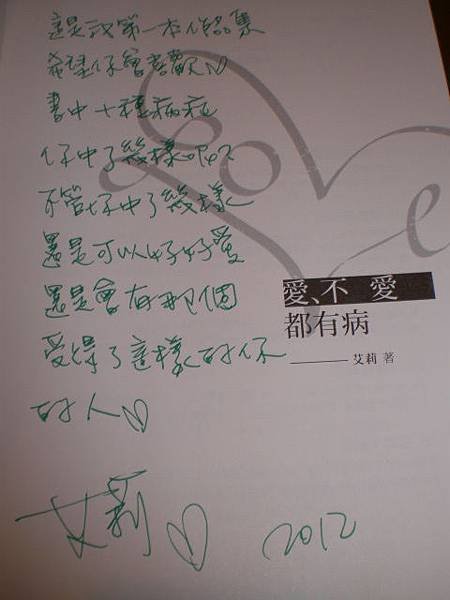 這是我第一本作品集
希望你會喜歡
書中十種病症
你中了幾樣呢?
不管妳中了幾樣
還是可以好好愛
還是會有那個
受得了這樣的你
的人
Love
愛、不愛
都有病
艾莉 著
艾莉 2012